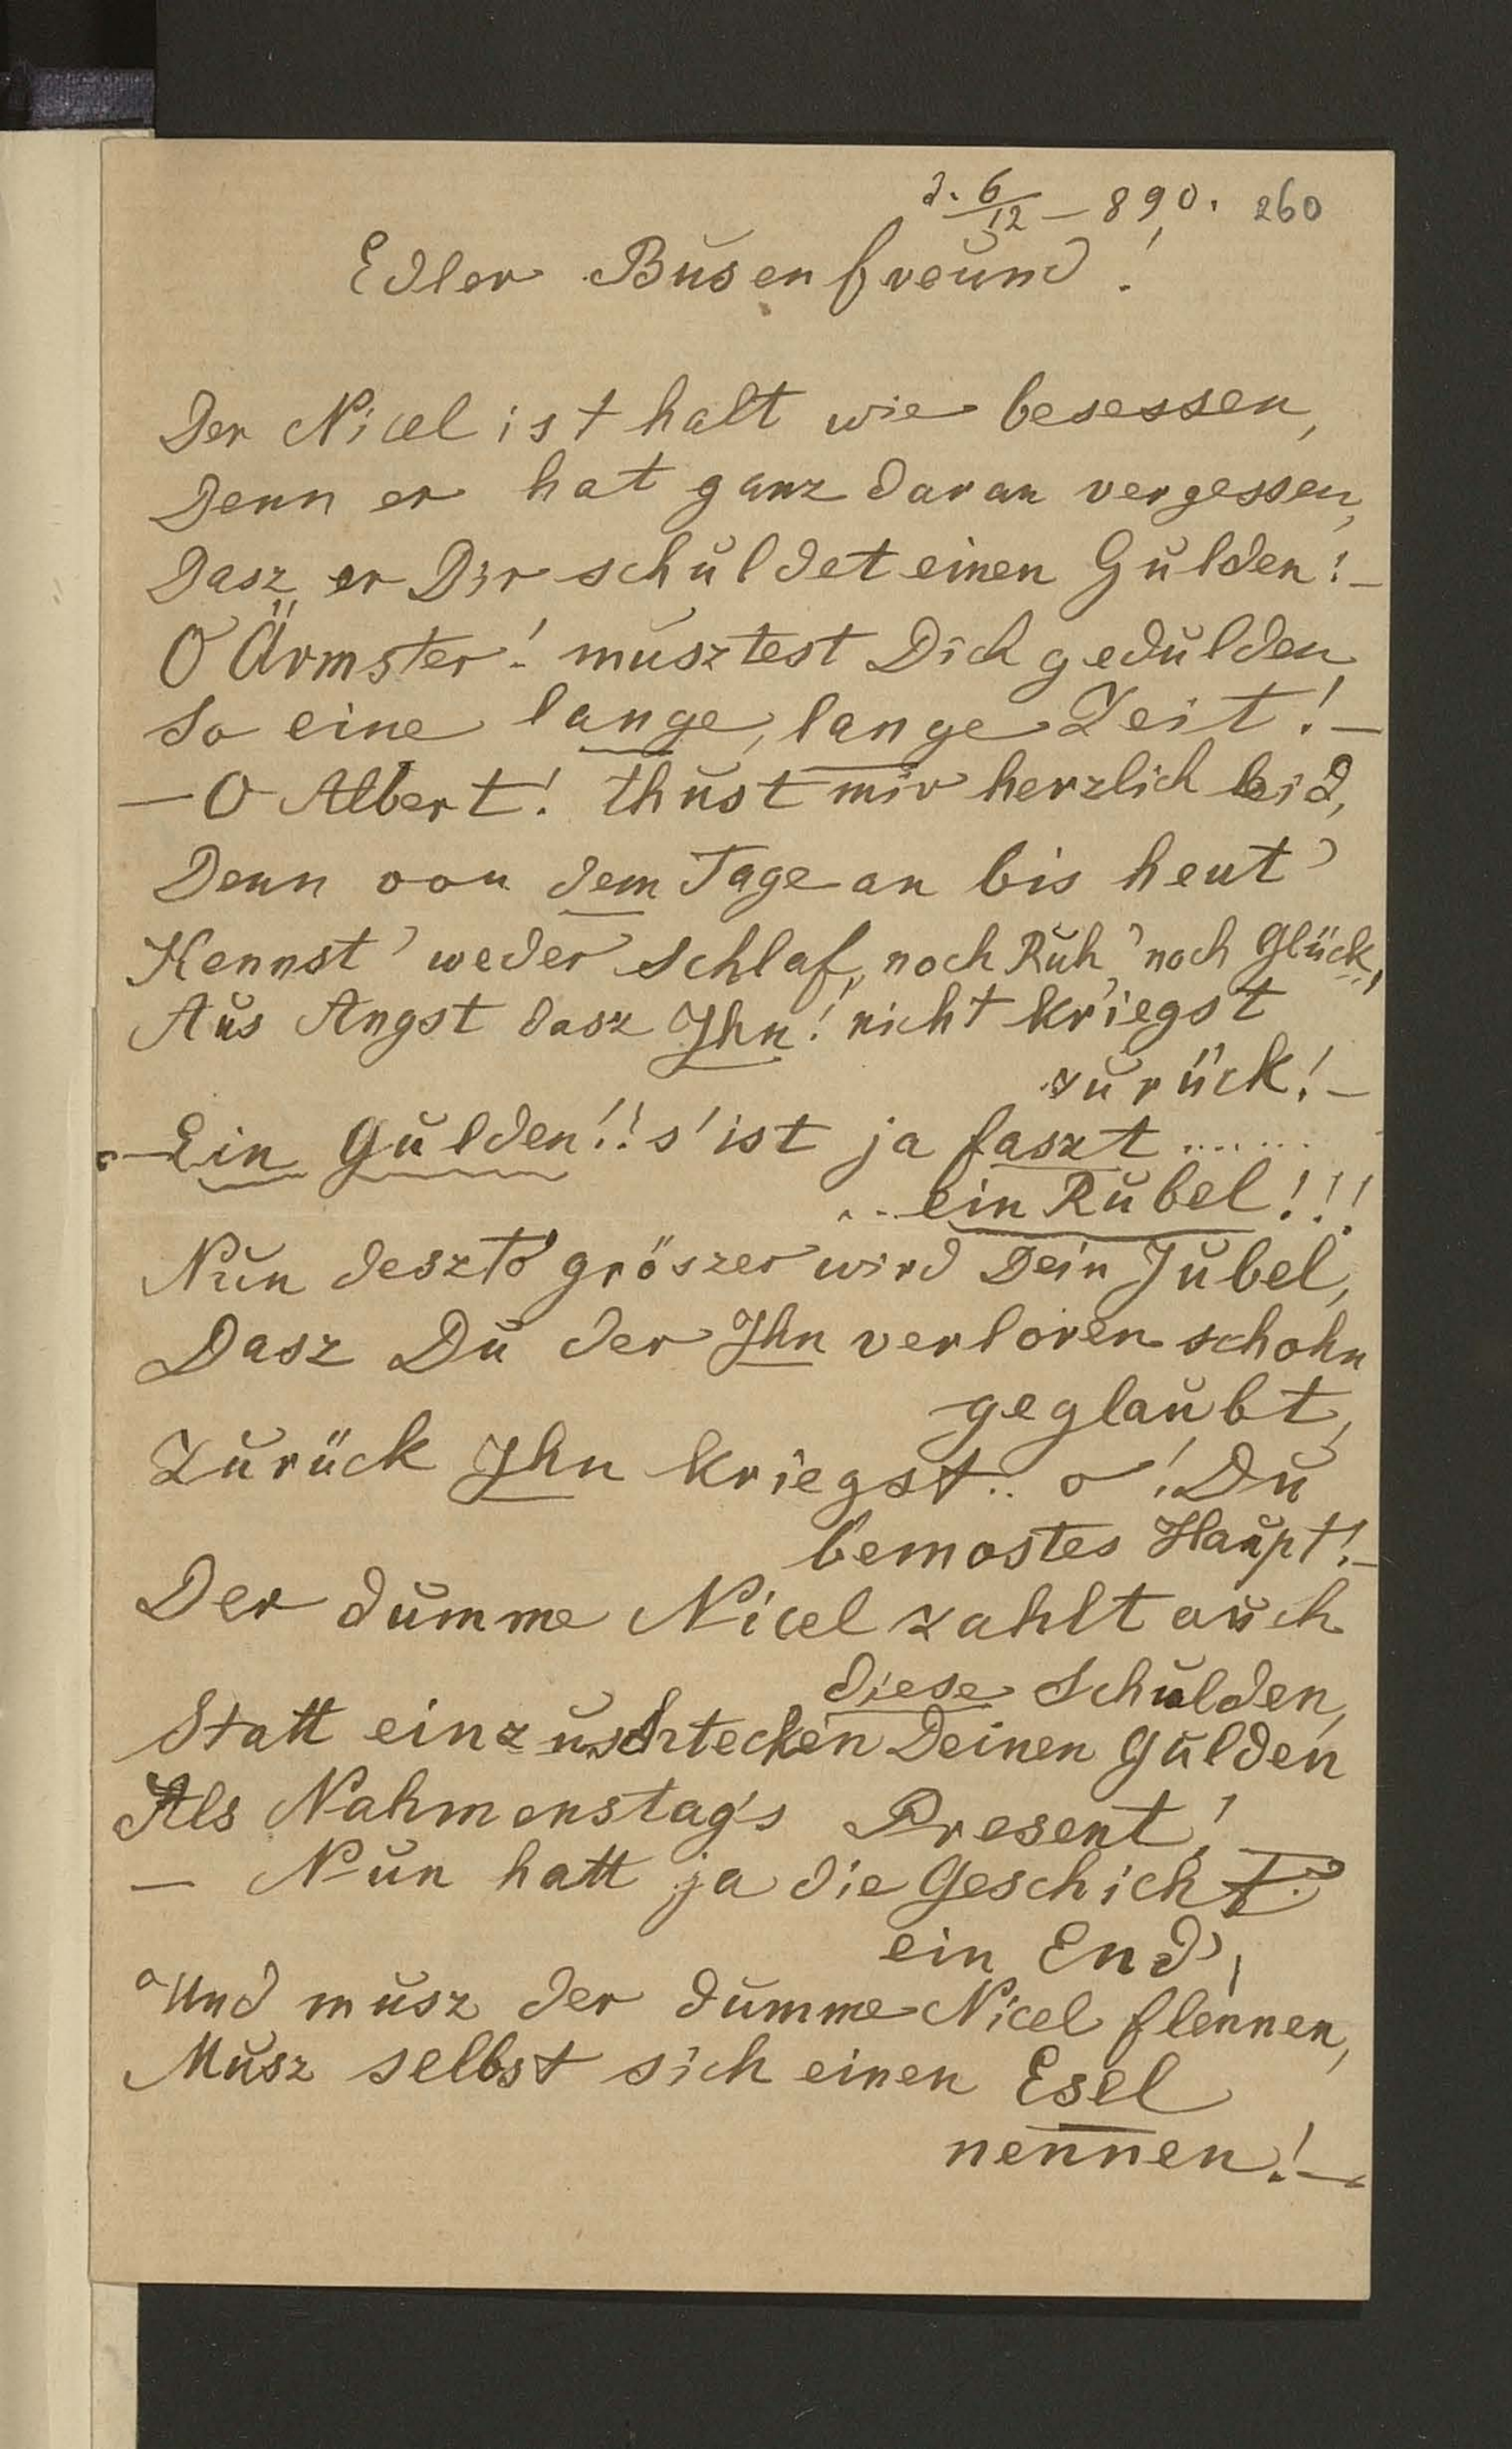 d. 6/12 – 890. 260
Edler Busenfreund!
Der Nicel ist halt wie besessen,
Denn er hat ganz daran vergessen,
Dasz er Dir schuldet einen Gulden! –
O Ärmster! musztest Dich gedulden
So eine lange, lange Zeit! –
– O Albert! thust mir herzlich leid,
Denn von dem Tage an bis heut'
Kennst' weder Schlaf, noch Ruh' noch Glück,
Aus Angst dasz Ihn! nicht kriegst
zurück! –
– Ein Gulden!! s'ist ja faszt .......
... ein Rubel!!!
Nun deszto gröszer wird Dein Jubel,
Dasz Du der Ihn verloren schohn
geglaubt,
Zurück Ihn kriegst.. o! Du
bemostes Haupt! –
Der dumme Nicel zahlt auch
diese Schulden,
Statt einzustecken Deinen Gulden
Als Nahmenstag's Present! –
– Nun hatt ja die Geschicht'
ein End',
Und musz der dumme Nicel flennen,
Musz selbst sich einen Esel
nennen! –